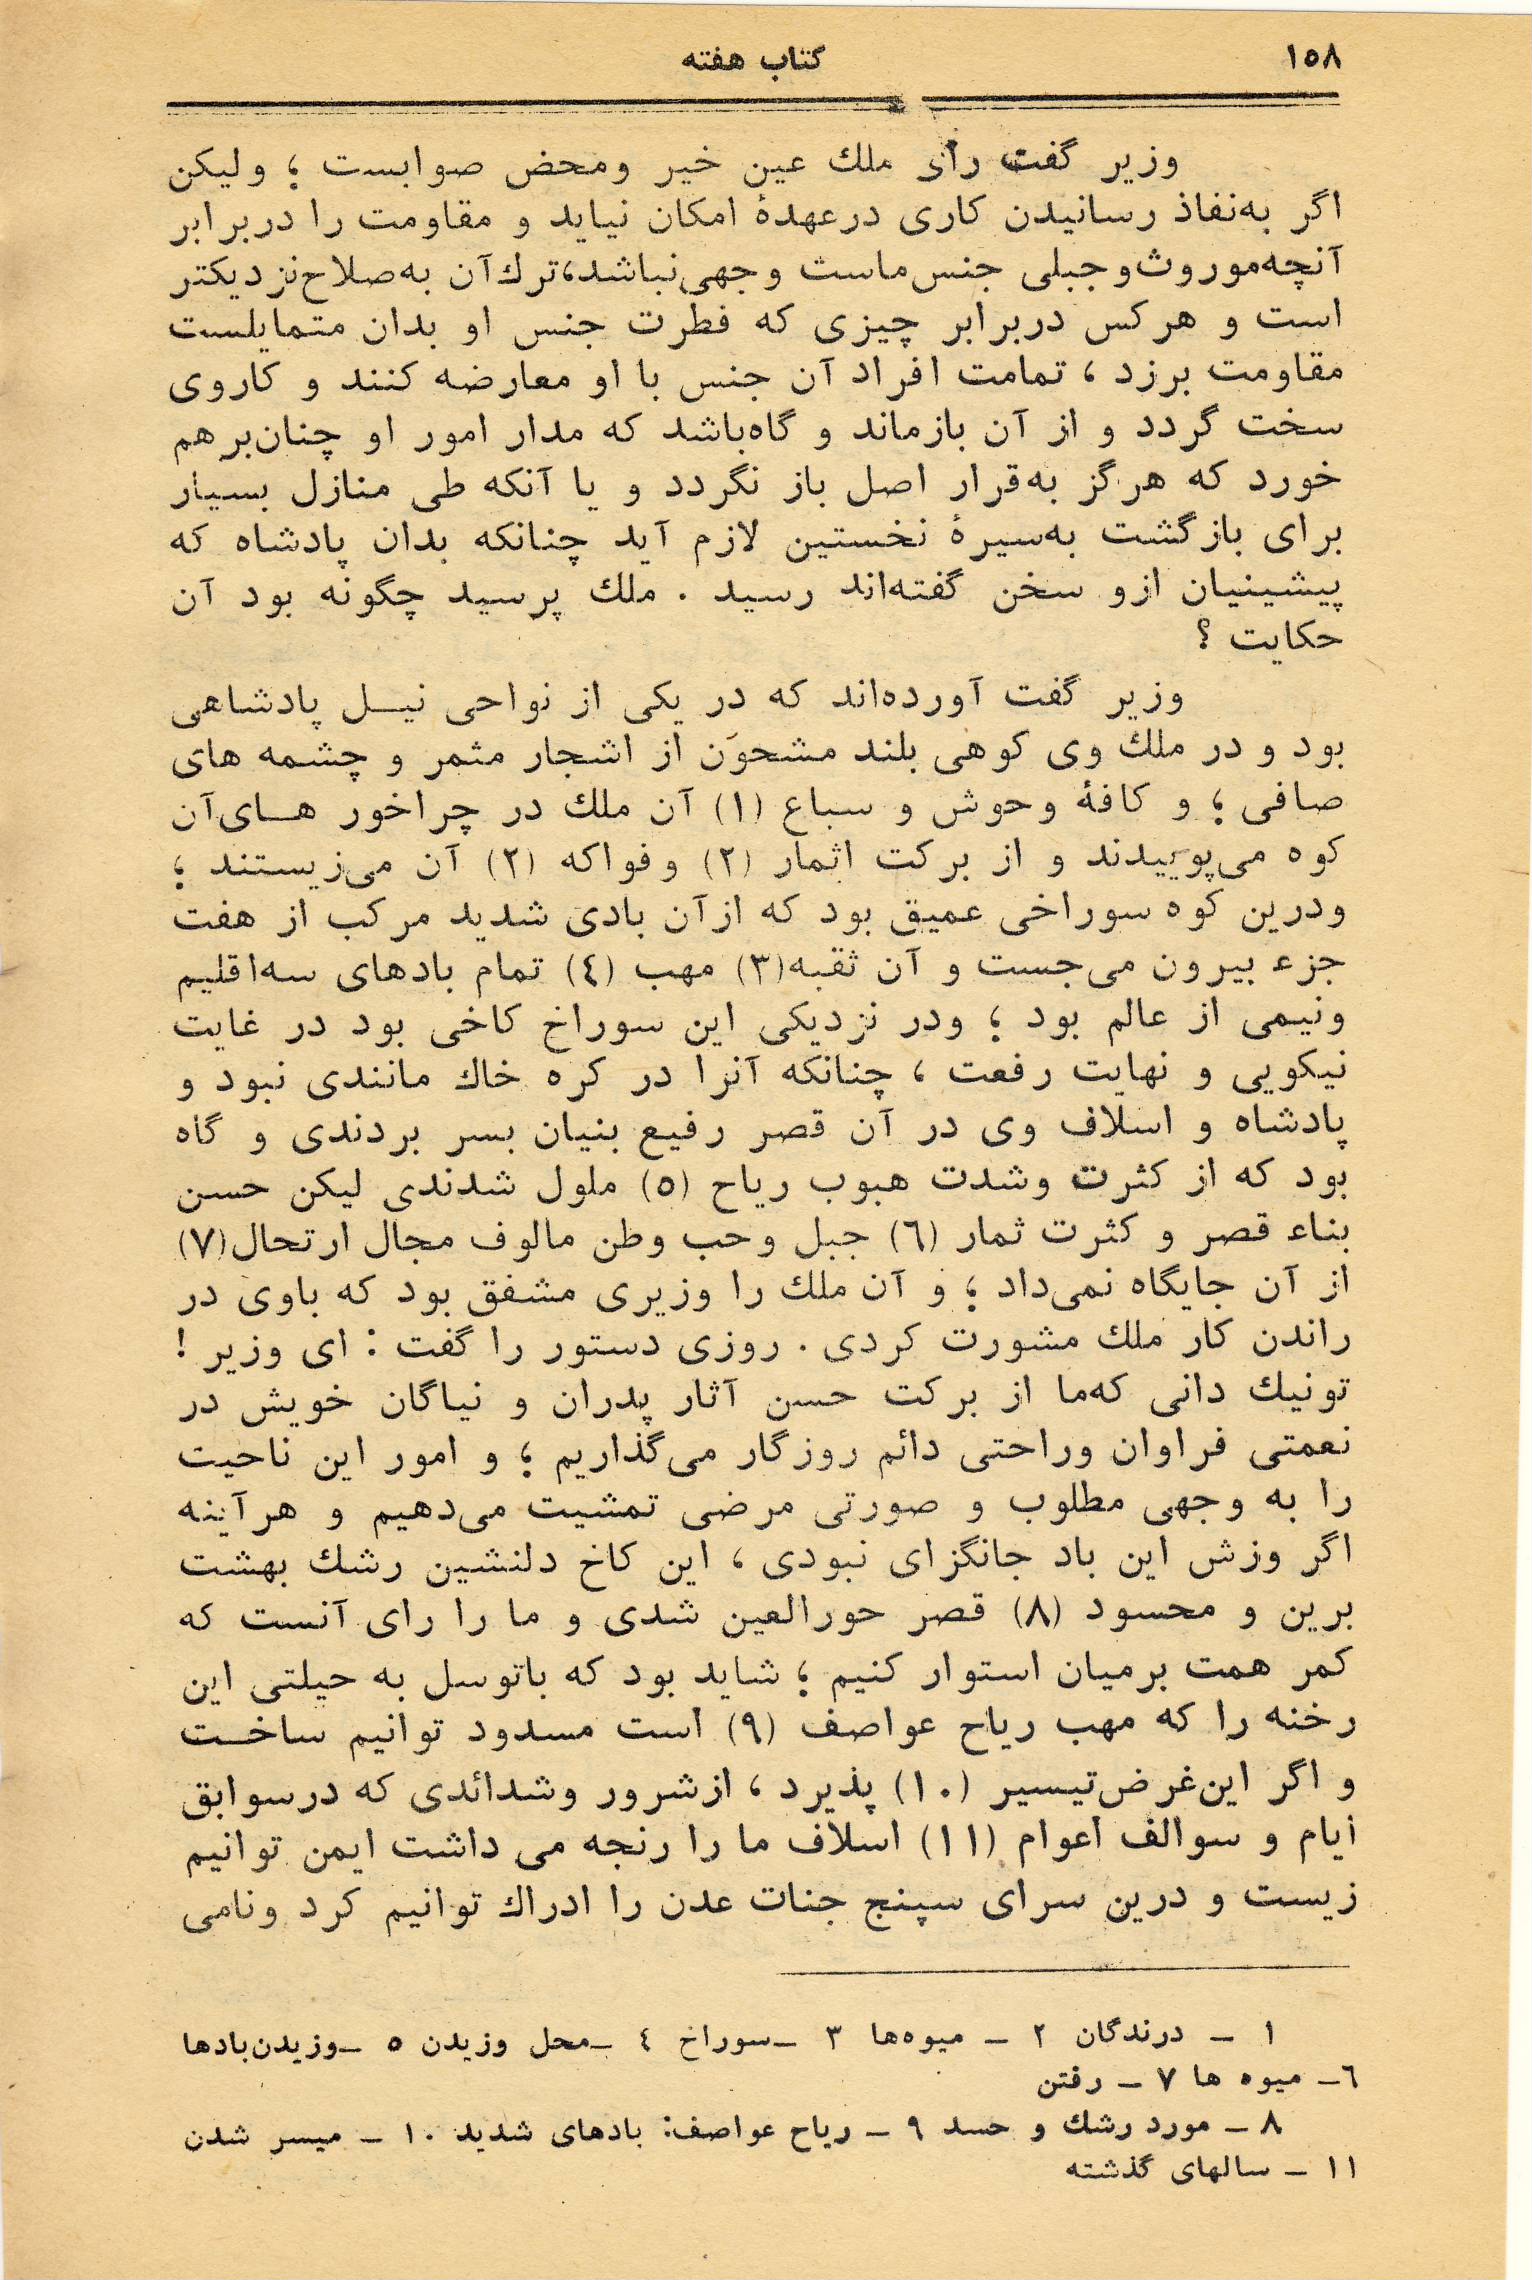 ۱۵۸
کتاب هفته
وزیر گفت رای ملك عین خیر ومحض صوابست ؛ ولیکن
اگر به‌نفاذ رسانیدن کاری درعهدهٔ امکان نیاید و مقاومت را دربرابر
آنچه‌موروث‌وجبلی جنس‌ماست وجهی‌نباشد،ترك‌آن به‌صلاح‌نزدیکتر
است و هرکس دربرابر چیزی که فطرت جنس او بدان متمایلست
مقاومت برزد ، تمامت افراد آن جنس با او معارضه کنند و کاروی
سخت گردد و از آن بازماند و گاه‌باشد که مدار امور او چنان‌برهم
خورد که هرگز به‌قرار اصل باز نگردد و یا آنکه طی منازل بسیار
برای بازگشت به‌سیرهٔ نخستین لازم آید چنانکه بدان پادشاه که
پیشینیان ازو سخن گفته‌اند رسید . ملك پرسید چگونه بود آن
حکایت ؟
وزیر گفت آورده‌اند که در یکی از نواحی نیـل پادشاهی
بود و در ملك وی کوهی بلند مشحون از اشجار مثمر و چشمه های
صافی ؛ و کافهٔ وحوش و سباع (۱) آن ملك در چراخور هـای‌آن
کوه می‌پوییدند و از برکت اثمار (۲) وفواکه (۲) آن می‌زیستند ؛
ودرین کوه سوراخی عمیق بود که ازآن بادی شدید مرکب از هفت
جزء بیرون می‌جست و آن ثقبه(۳) مهب (٤) تمام بادهای سه‌اقلیم
ونیمی از عالم بود ؛ ودر نزدیکی این سوراخ کاخی بود در غایت
نیکویی و نهایت رفعت ، چنانکه آنرا در کره خاك مانندی نبود و
پادشاه و اسلاف وی در آن قصر رفیع بنیان بسر بردندی و گاه
بود که از کثرت وشدت هبوب ریاح (۵) ملول شدندی لیکن حسن
بناء قصر و کثرت ثمار (٦) جبل وحب وطن مالوف مجال ارتحال(۷)
از آن جایگاه نمی‌داد ؛ و آن ملك را وزیری مشفق بود که باوی در
راندن کار ملك مشورت کردی . روزی دستور را گفت : ای وزیر !
تونیك دانی که‌ما از برکت حسن آثار پدران و نیاگان خویش در
نعمتی فراوان وراحتی دائم روزگار می‌گذاریم ؛ و امور این ناحیت
را به وجهی مطلوب و صورتی مرضی تمشیت می‌دهیم و هرآینه
اگر وزش این باد جانگزای نبودی ، این کاخ دلنشین رشك بهشت
برین و محسود (۸) قصر حورالعین شدی و ما را رای آنست که
کمر همت برمیان استوار کنیم ؛ شاید بود که باتوسل به حیلتی این
رخنه را که مهب ریاح عواصف (۹) است مسدود توانیم ساخـت
و اگر این‌غرض‌تیسیر (۱۰) پذیرد ، ازشرور وشدائدی که درسوابق
ایام و سوالف اعوام (۱۱) اسلاف ما را رنجه می داشت ایمن توانیم
زیست و درین سرای سپنج جنات عدن را ادراك توانیم کرد ونامی
۱ ـ درندگان ۲ ـ میوه‌ها ۳ ـ‌سوراخ ٤ ـ‌محل وزیدن ۵ ـ‌وزیدن‌بادها
٦ـ میوه ها ۷ ـ رفتن
۸ ـ مورد رشك و حسد ۹ ـ ریاح عواصف: بادهای شدید ۱۰ ـ میسر شدن
۱۱ ـ سالهای گذشته